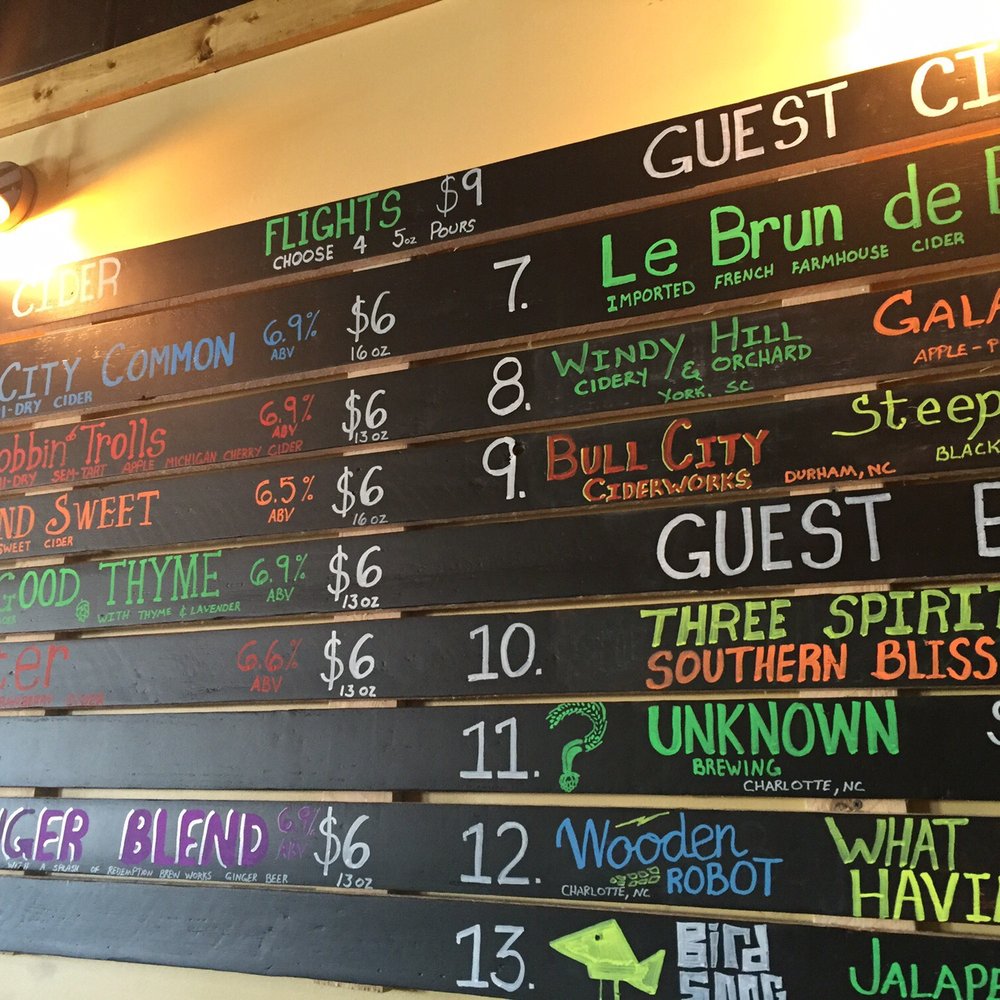 CIDER
FLIGHTS $9
CHOOSE 4 5oz POURS
CITY COMMON 6.9% ABV $6
I-DRY CIDER 16 OZ
obbin' Trolls 6.9% ABV $6
I-DRY SEMI-TART APPLE MICHIGAN CHERRY CIDER 13 OZ
ND SWEET 6.5% ABV $6
SWEET CIDER 16 OZ
GOOD THYME 6.9% ABV $6
WITH THYME & LAVENDER 13 OZ
ter 6.6% ABV $6
13 OZ
NGER BLEND 6.9% ABV $6
WITH A SPLASH OF REDEMPTION BREW WORKS GINGER BEER 13 OZ
GUEST CI
7. Le Brun de
IMPORTED FRENCH FARMHOUSE CIDER
8. WINDY HILL GALA
CIDERY & ORCHARD APPLE-P
YORK, SC
9. BULL CITY Steep
CIDERWORKS DURHAM, NC BLACK
GUEST
10. THREE SPIRIT
SOUTHERN BLISS
11. ? UNKNOWN
BREWING
CHARLOTTE, NC
12. Wooden WHAT
ROBOT HAVIN
CHARLOTTE, NC
13. BIRD JALAPE
SONG